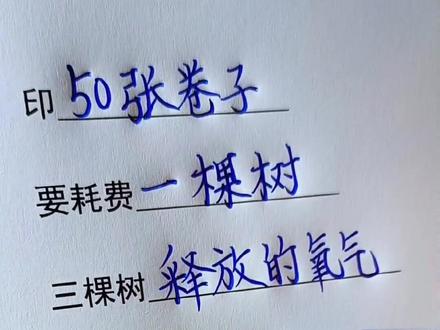 印50张卷子
要耗费一棵树
三棵树释放的氧气